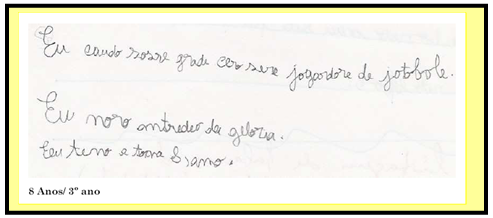 Eu caudo sosse grade cero sere jogadore de jotobole.
Eu moro antredeo da geloria.
Eu teno e toana 8 amo.
8 Anos/ 3º ano